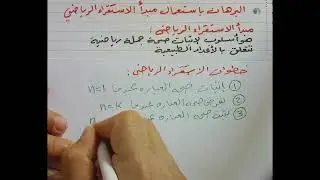 البرهان باستعمال مبدأ الاستقراء الرياضي
مبدأ الاستقراء الرياضي:
هو أسلوب لإثبات صحة جملة رياضية
تتعلق بالأعداد الطبيعية
خطوات الاستقراء الرياضي:
① إثبات صحة العبارة عندما n=1
② نفرض صحة العبارة عندما n=k
③ نثبت صحة العبارة عندما n